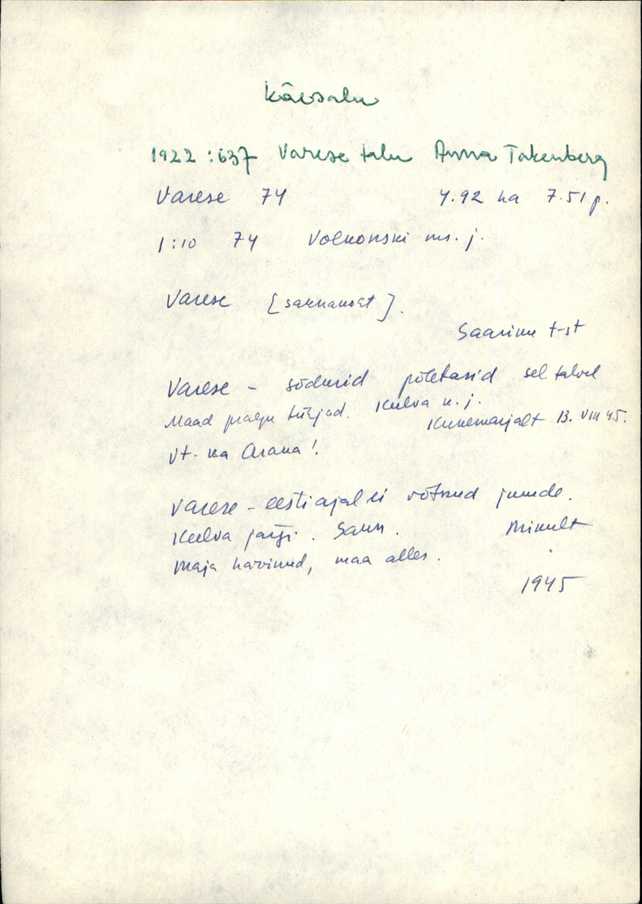 Käesalu
1922 : 637 Varese talu Anna Takenberg
Varese 74 4.92 ha 7.51 p.
1:10 74 Volkonski ms. j.
Varese [sarnanest].
Saarime t-st
Varese - sõdurid põletasid sel talvel
Maad palju tühjad. Keelva n. j.
Kukemarjalt 13. VIII 45.
Vt. ka Arana!
Varese - eesti ajal ei võtnud juurde.
Keelva järgi. Saun. Mikult
Maja hävinud, maa alles.
1945